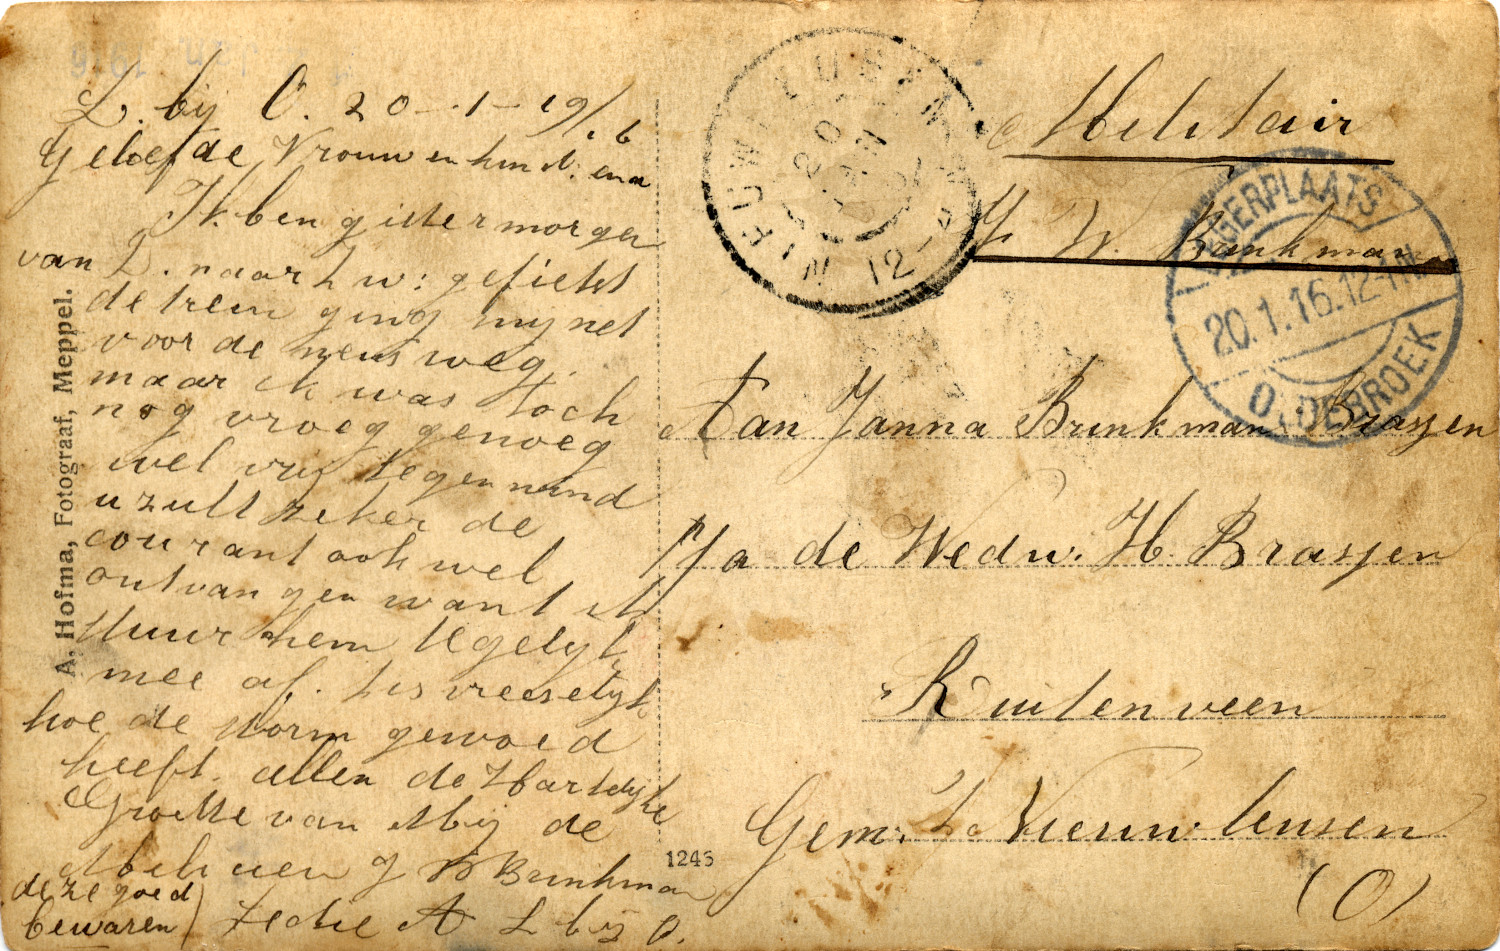 L. bij O. 20-1-1916
Geliefde Vrouw en kind: en a
Ik ben gister morgen
van L. naar h w: gefietst
de trein ging mij net
voor de neus weg.
maar ik was toch
nog vroeg genoeg
wel vrij tegen wind
u zult zeker de
courant ook wel
ontvangen want ik
stuur hem tegelijk
mee af. t is vreeselijk
hoe de storm gewoed
heeft. allen de Hartelijke
Groette van Mij de
J W Brinkman
deze goed
bewaren
A L bij O.
A. Hofma, Fotograaf, Meppel.
1243
NIEUWLEUSEN
20 JAN
12-
Militair
J. W. Brinkman
LEGERPLAATS
20.1.16.12-1N
OLDEBROEK
Aan Janna Brinkman Brasjen
p/a de Wedw. H. Brasjen
Ruitenveen
Gem: Nieuwleusen
(O)